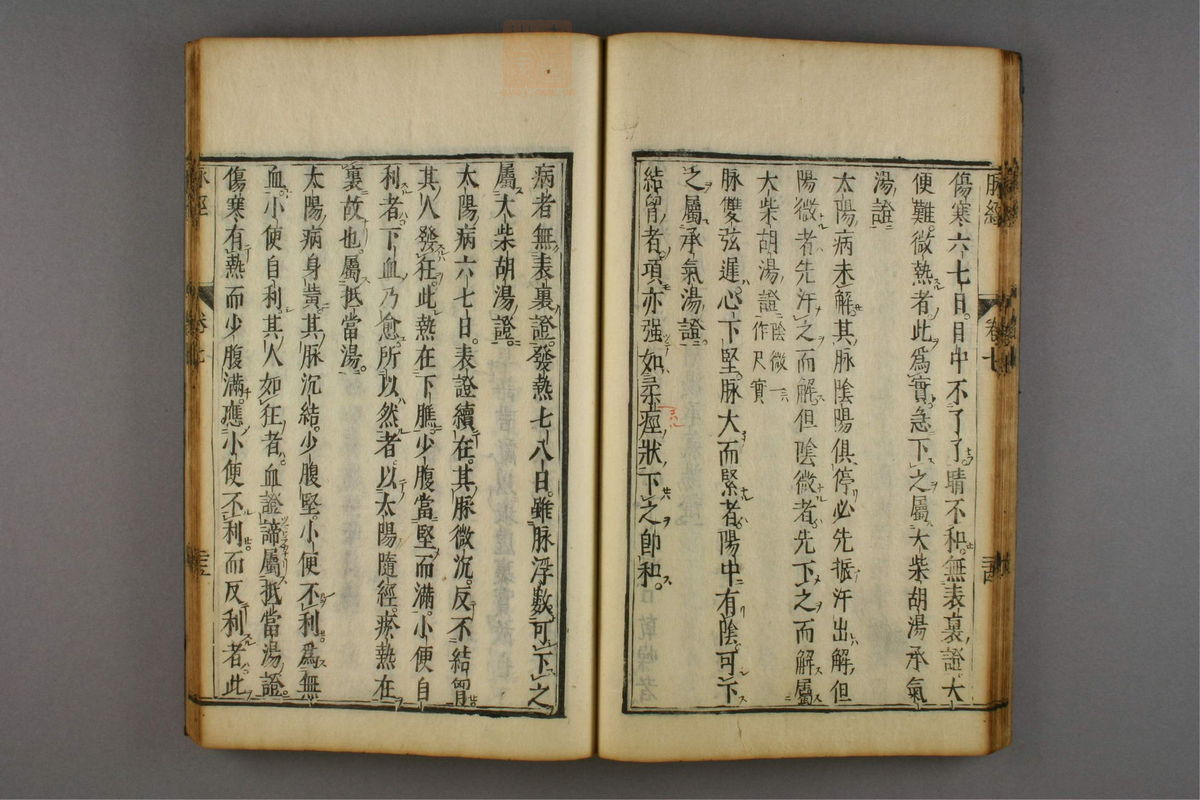 脉經 卷七
傷寒六七日。目中不了了。睛不和。無表裏證。大
便難。微熱者。此爲實。急下之。屬大柴胡湯承氣
湯證
太陽病未解。其脉陰陽俱停。必先振汗出解。但
陽微者。先汗之而解。但陰微者。先下之而解。屬
大柴胡湯證 陰微一作尺實
脉雙弦遲。心下堅。脉大而緊者。陽中有陰。可下
之。屬承氣湯證。
結胷者。項亦强。如柔痓狀。下之即和。
病者無表裏證。發熱七八日。雖脉浮數。可下之
屬大柴胡湯證。
太陽病六七日。表證續在。其脉微沉。反不結胷
其人發狂。此熱在下膲。少腹當堅而滿。小便自
利者。下血乃愈。所以然者。以太陽隨經。瘀熱在
裏故也。屬抵當湯。
太陽病身黄。其脉沉結。少腹堅。小便不利。爲無
血。小便自利。其人如狂者。血證諦。屬抵當湯證。
傷寒有熱而少腹滿。應小便不利。而反利者。此
脉經 卷七